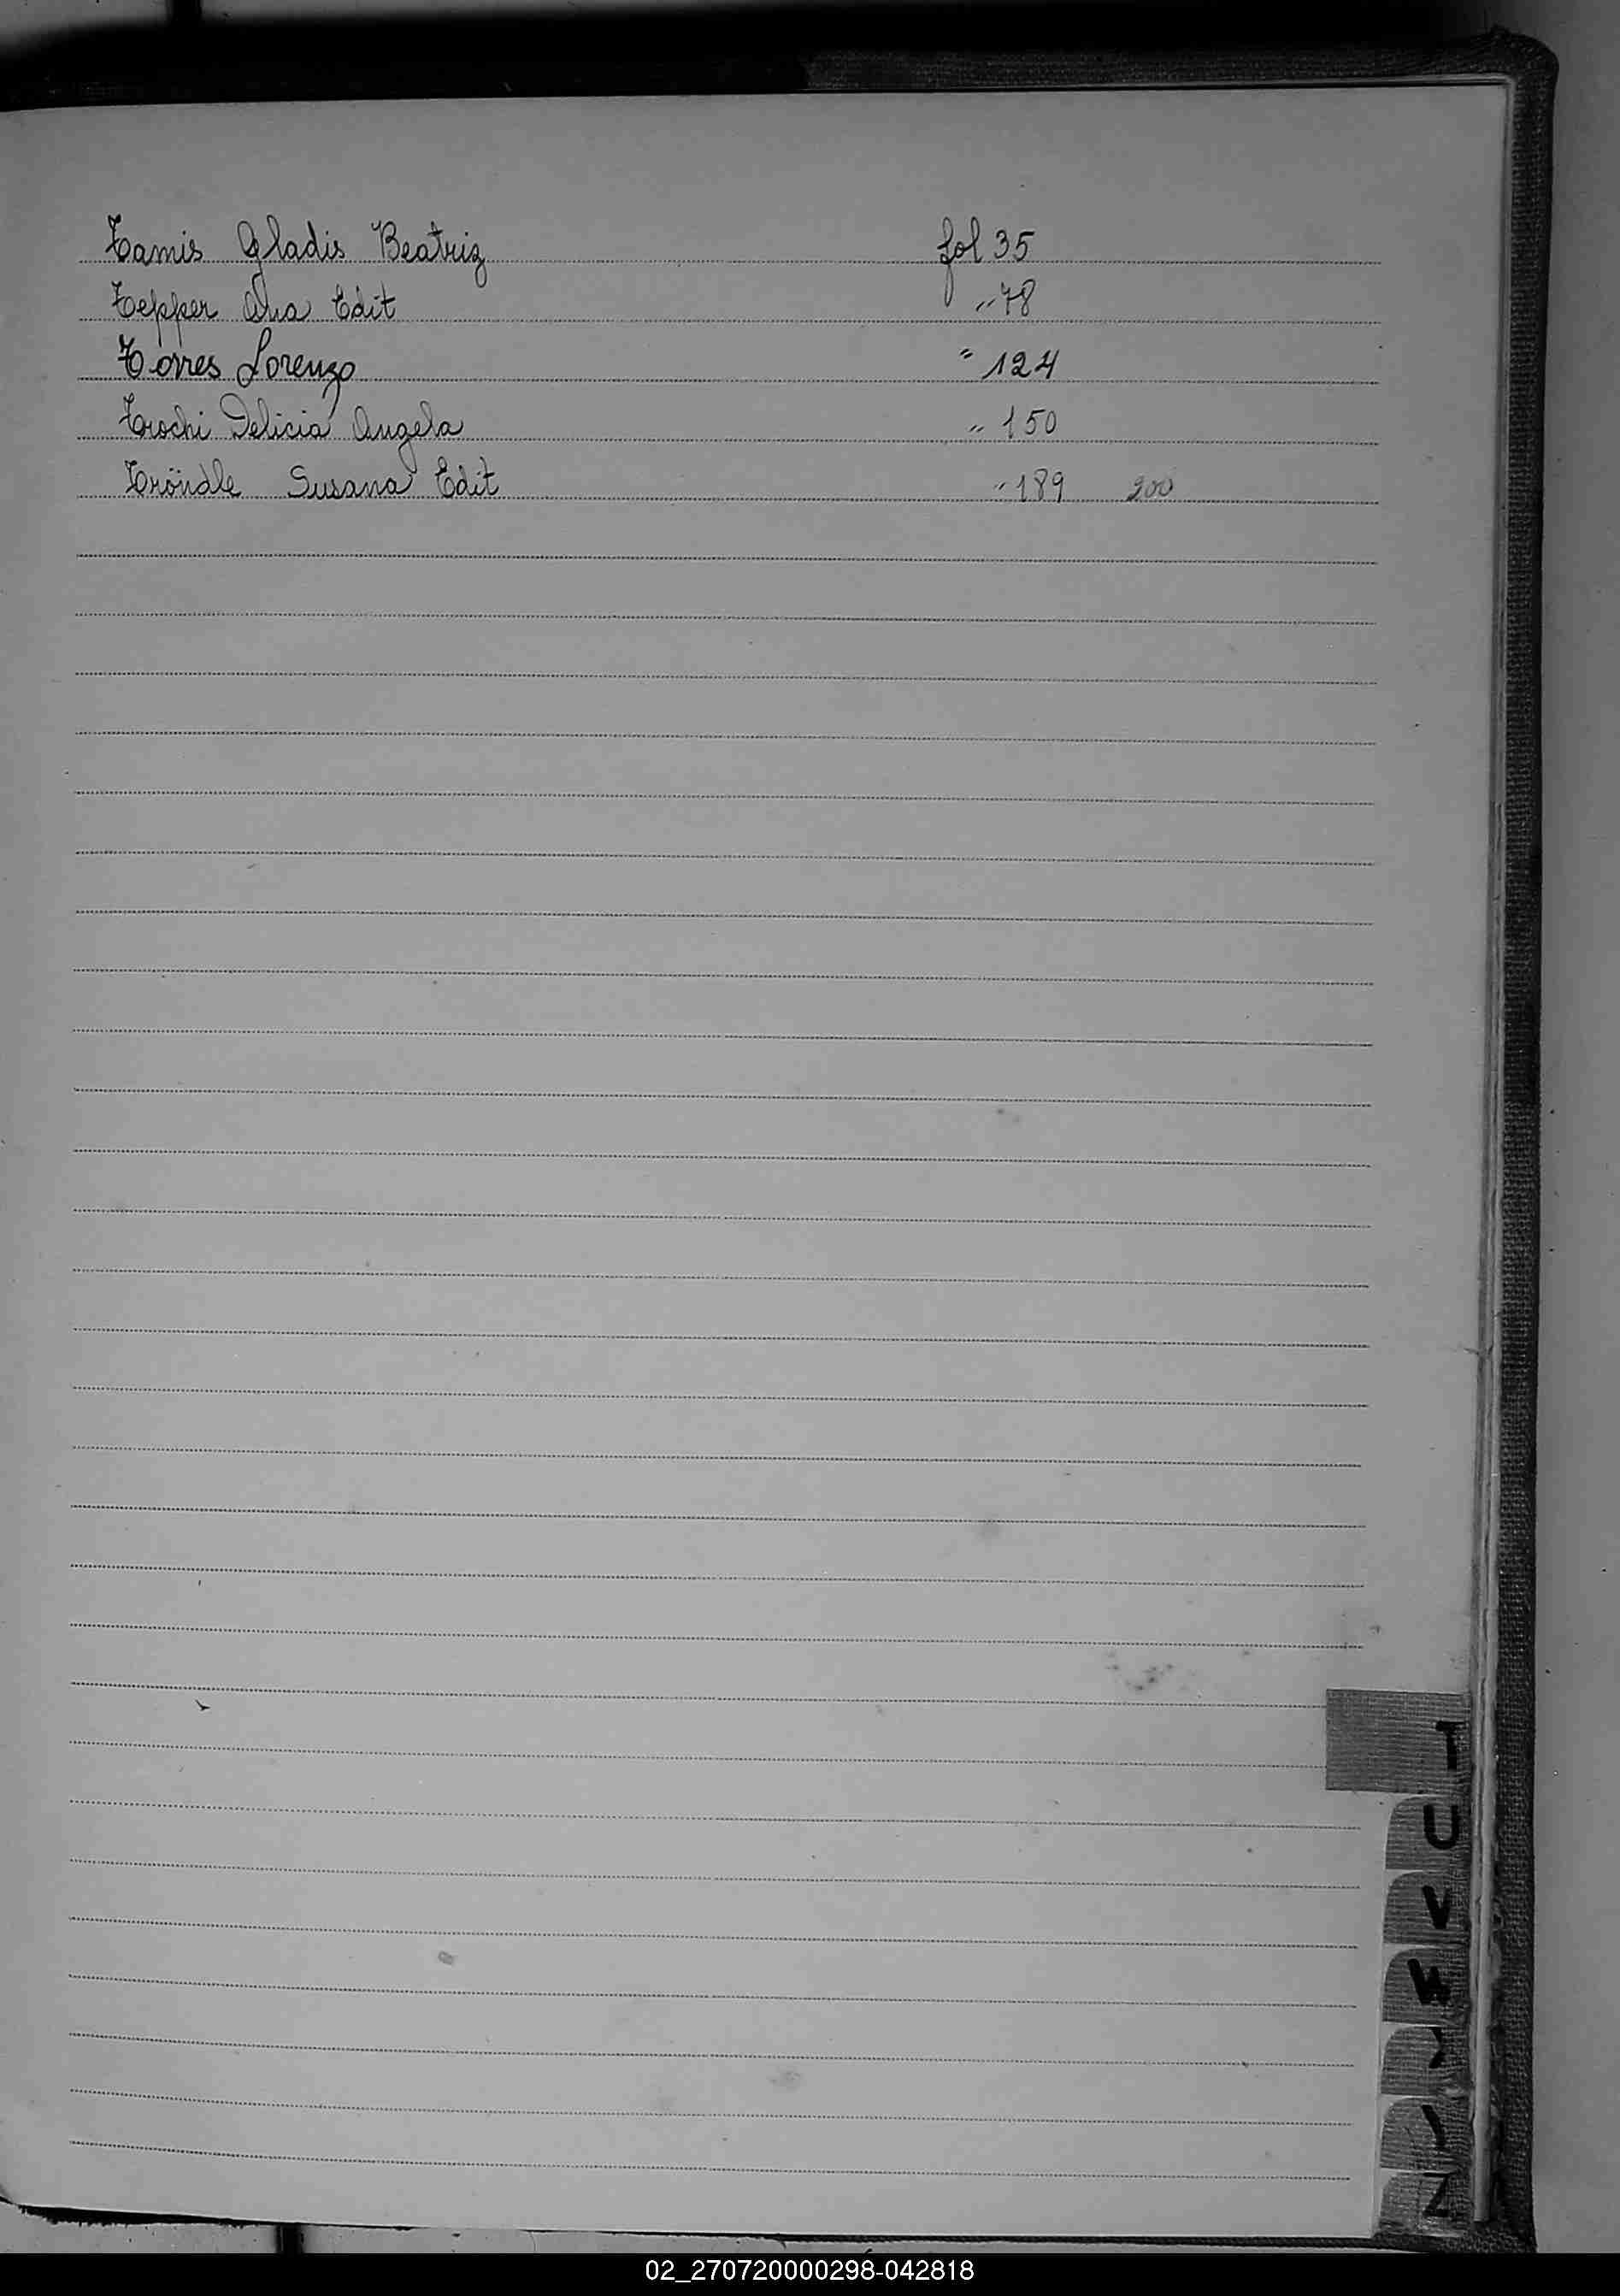 Tamis Gladis Beatriz fol 35
Tepper Ana Edit " 78
Torres Lorenzo " 124
Trochi Delicia Angela " 150
Tröndle Susana Edit " 189 200
T
U
V
W
Z
02_270720000298-042818